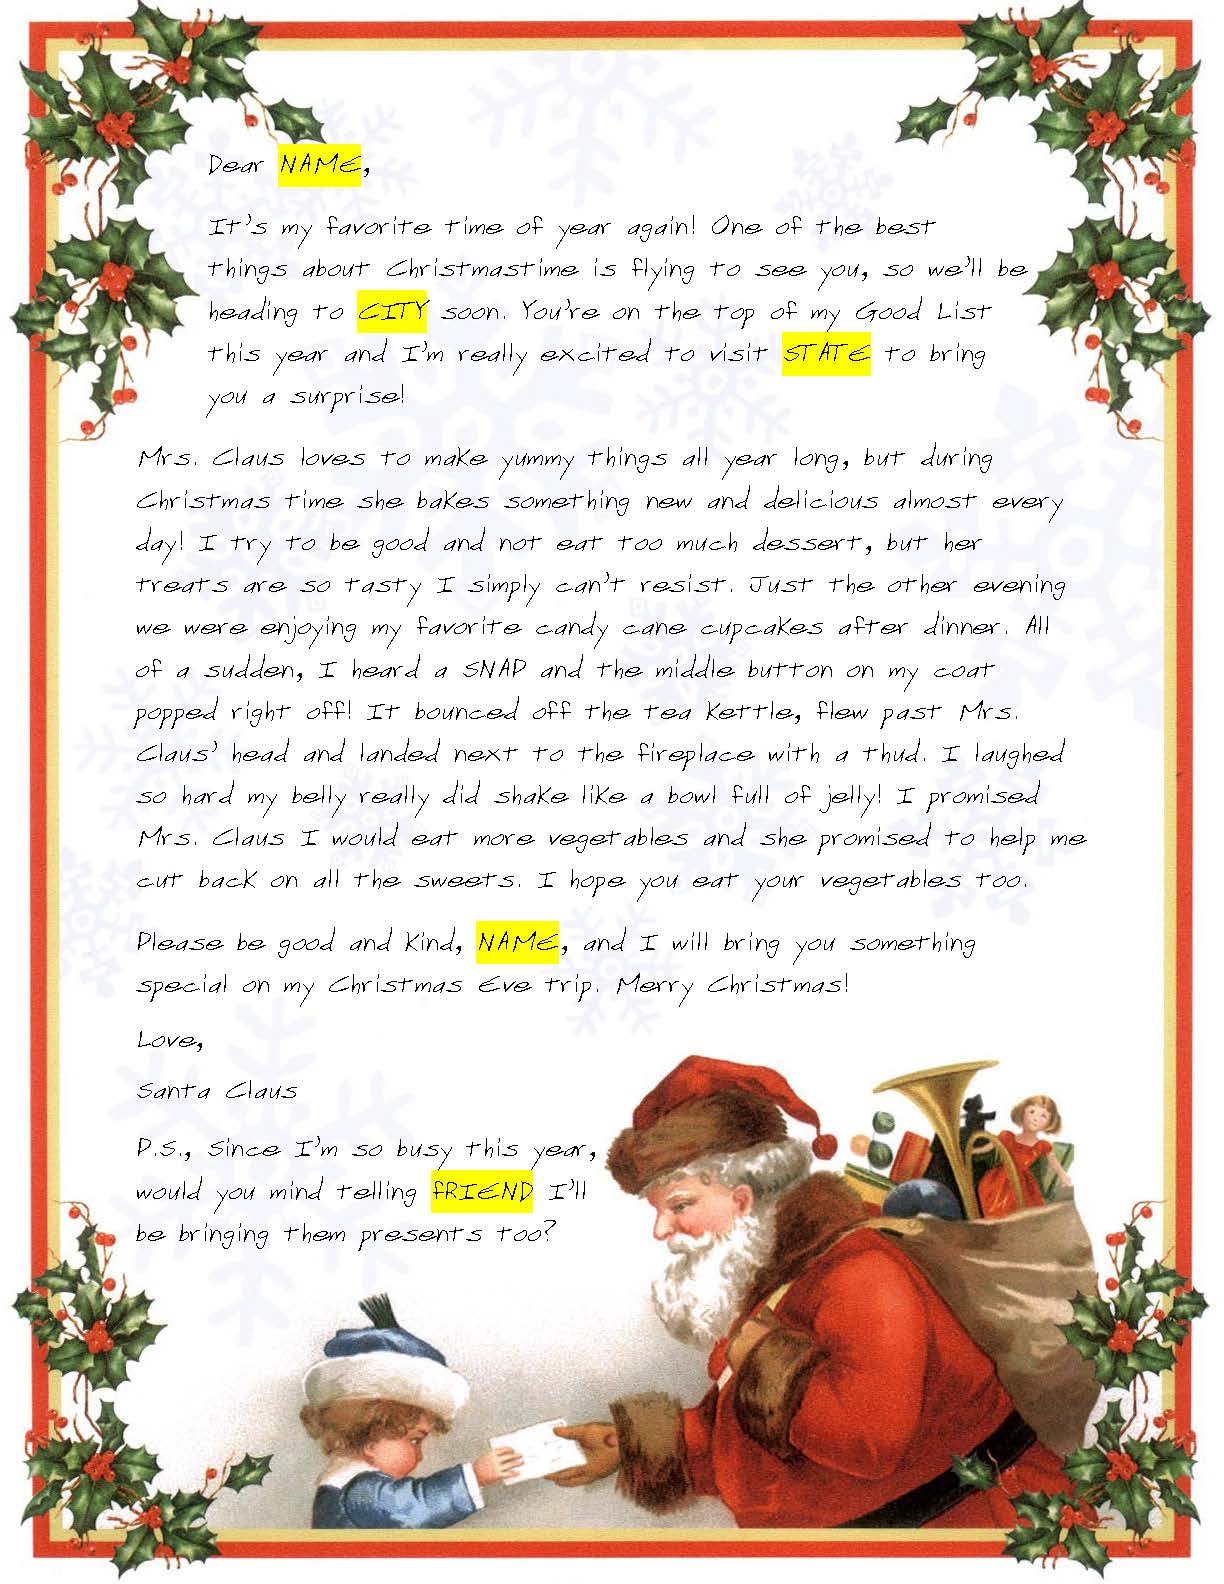 Dear NAME,
It's my favorite time of year again! One of the best
things about Christmastime is flying to see you, so we'll be
heading to CITY soon. You're on the top of my Good List
this year and I'm really excited to visit STATE to bring
you a surprise!
Mrs. Claus loves to make yummy things all year long, but during
Christmas time she bakes something new and delicious almost every
day! I try to be good and not eat too much dessert, but her
treats are so tasty I simply can't resist. Just the other evening
we were enjoying my favorite candy cane cupcakes after dinner. All
of a sudden, I heard a SNAP and the middle button on my coat
popped right off! It bounced off the tea kettle, flew past Mrs.
Claus' head and landed next to the fireplace with a thud. I laughed
so hard my belly really did shake like a bowl full of jelly! I promised
Mrs. Claus I would eat more vegetables and she promised to help me
cut back on all the sweets. I hope you eat your vegetables too.
Please be good and kind, NAME, and I will bring you something
special on my Christmas Eve trip. Merry Christmas!
Love,
Santa Claus
P.S., since I'm so busy this year,
would you mind telling FRIEND I'll
be bringing them presents too?